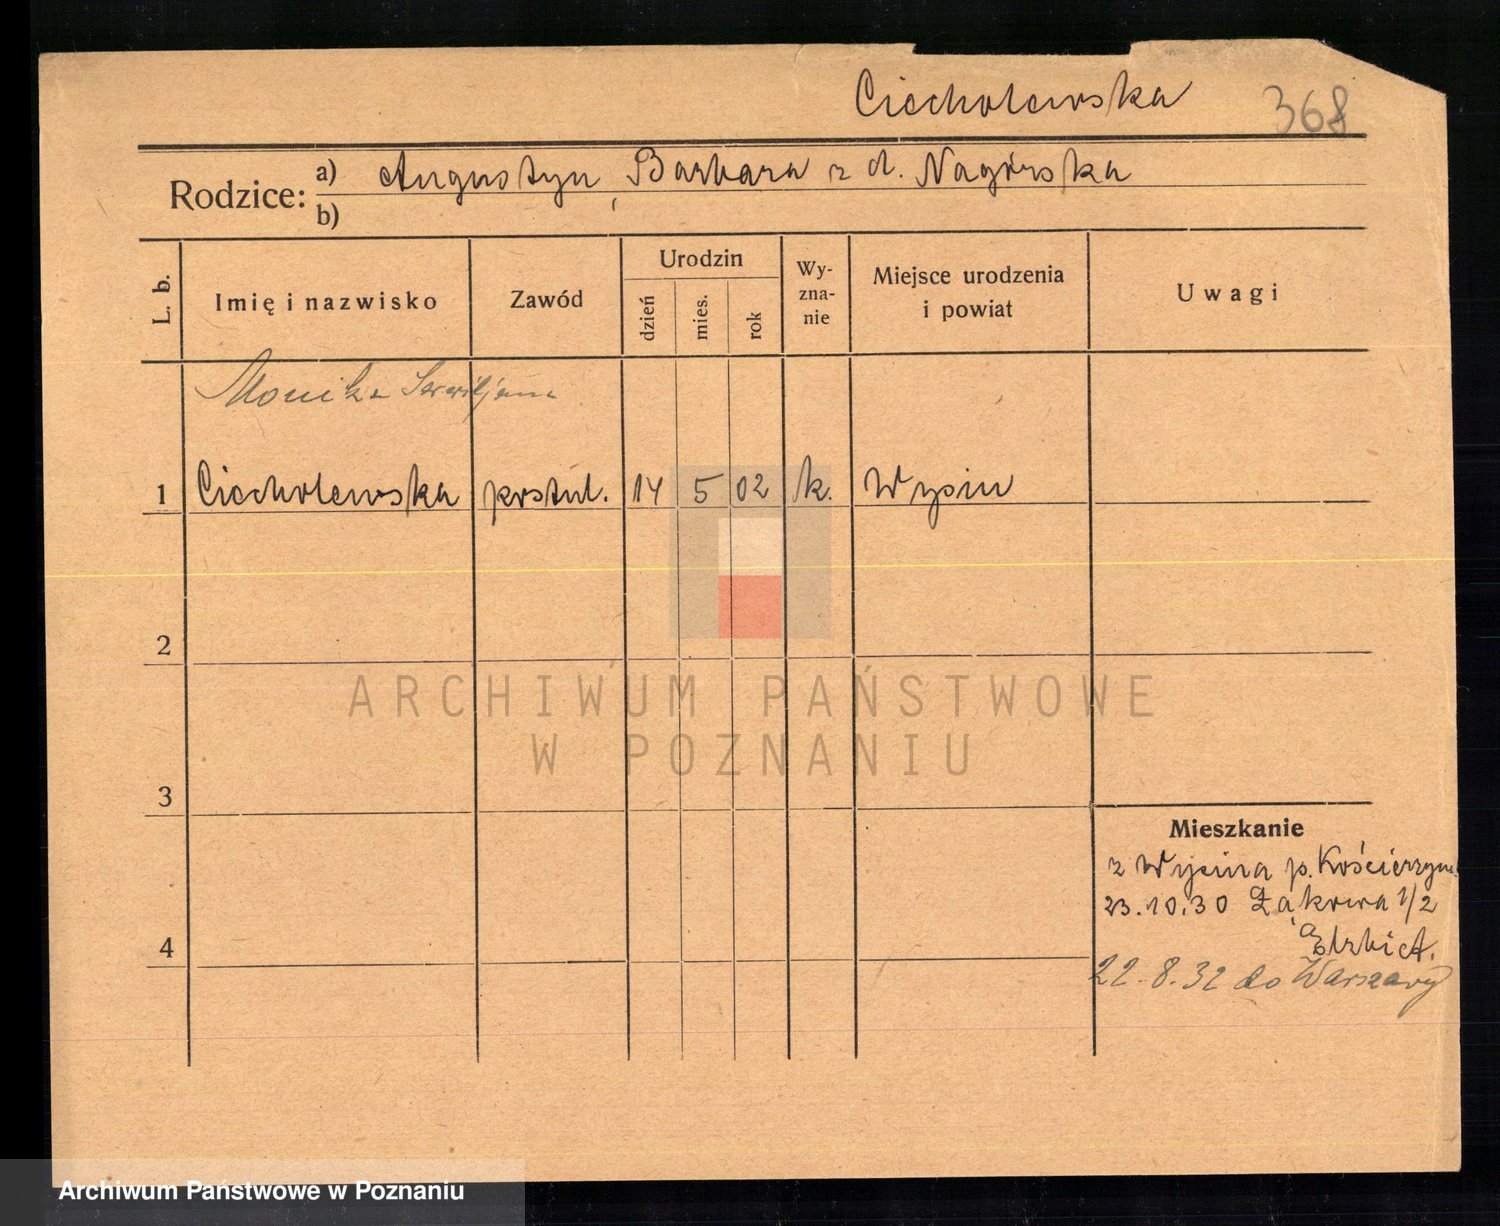 Ciecholewska 368
Rodzice: a) Augustyn, Barbara z d. Nagórska
b)
L. b. Imię i nazwisko Zawód Urodzin dzień mies. rok Wy-zna-nie Miejsce urodzenia i powiat Uwagi
Monika
1 Ciecholewska postul. 14 5 02 k. Wysin
2
3
4
Mieszkanie
z Wysina p. Kościerzyna
23.10.30 Łąkowa 1/2
Elżbiet.
22.8.32 do Warszawy
ARCHIWUM PAŃSTWOWE
W POZNANIU
Archiwum Państwowe w Poznaniu